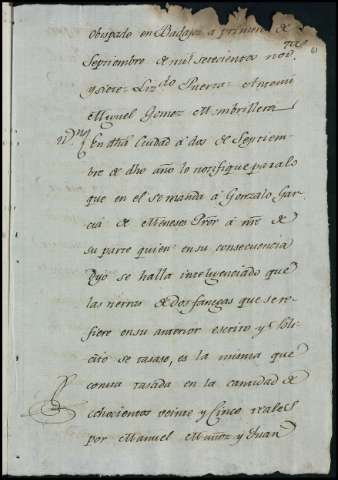 Obispado en Badajoz a primero de
Septiembre de mil setecientos nov.ta
y siete Liz.do Puerta Antoni
Miguel Gomez Membrillera
En dha Ciudad à dos de Septiem-
bre de dho año lo notifique para lo
que en el se manda à Gonzalo Gar-
cia de Meneses Pror à nre de
su parte quien en su consecuencia
Dijo se halla inteligenciado que
las tierras de dos fanegas que se re-
fiere en su anterior escrito y soli-
cito se tasase, es la misma que
consta tasada en la cantidad de
ochocientos veinte y Cinco reales
por Manuel Muñoz y Juan